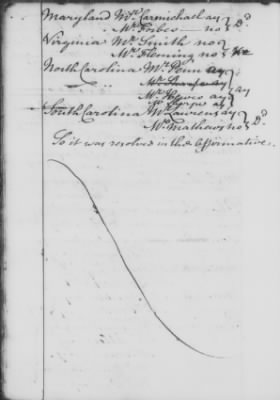 Maryland Mr. Carmichael ay } Dd
Mr. Forbes — no
Virginia Mr. Smith no } no
Mr. Fleming no
North Carolina Mr. Penn ay
Mr. Hewes ay } ay
Mr. Sharpe ay
South Carolina Mr. Laurens ay } Dd.
Mr. Mathews no
So it was resolved in the Affirmative.